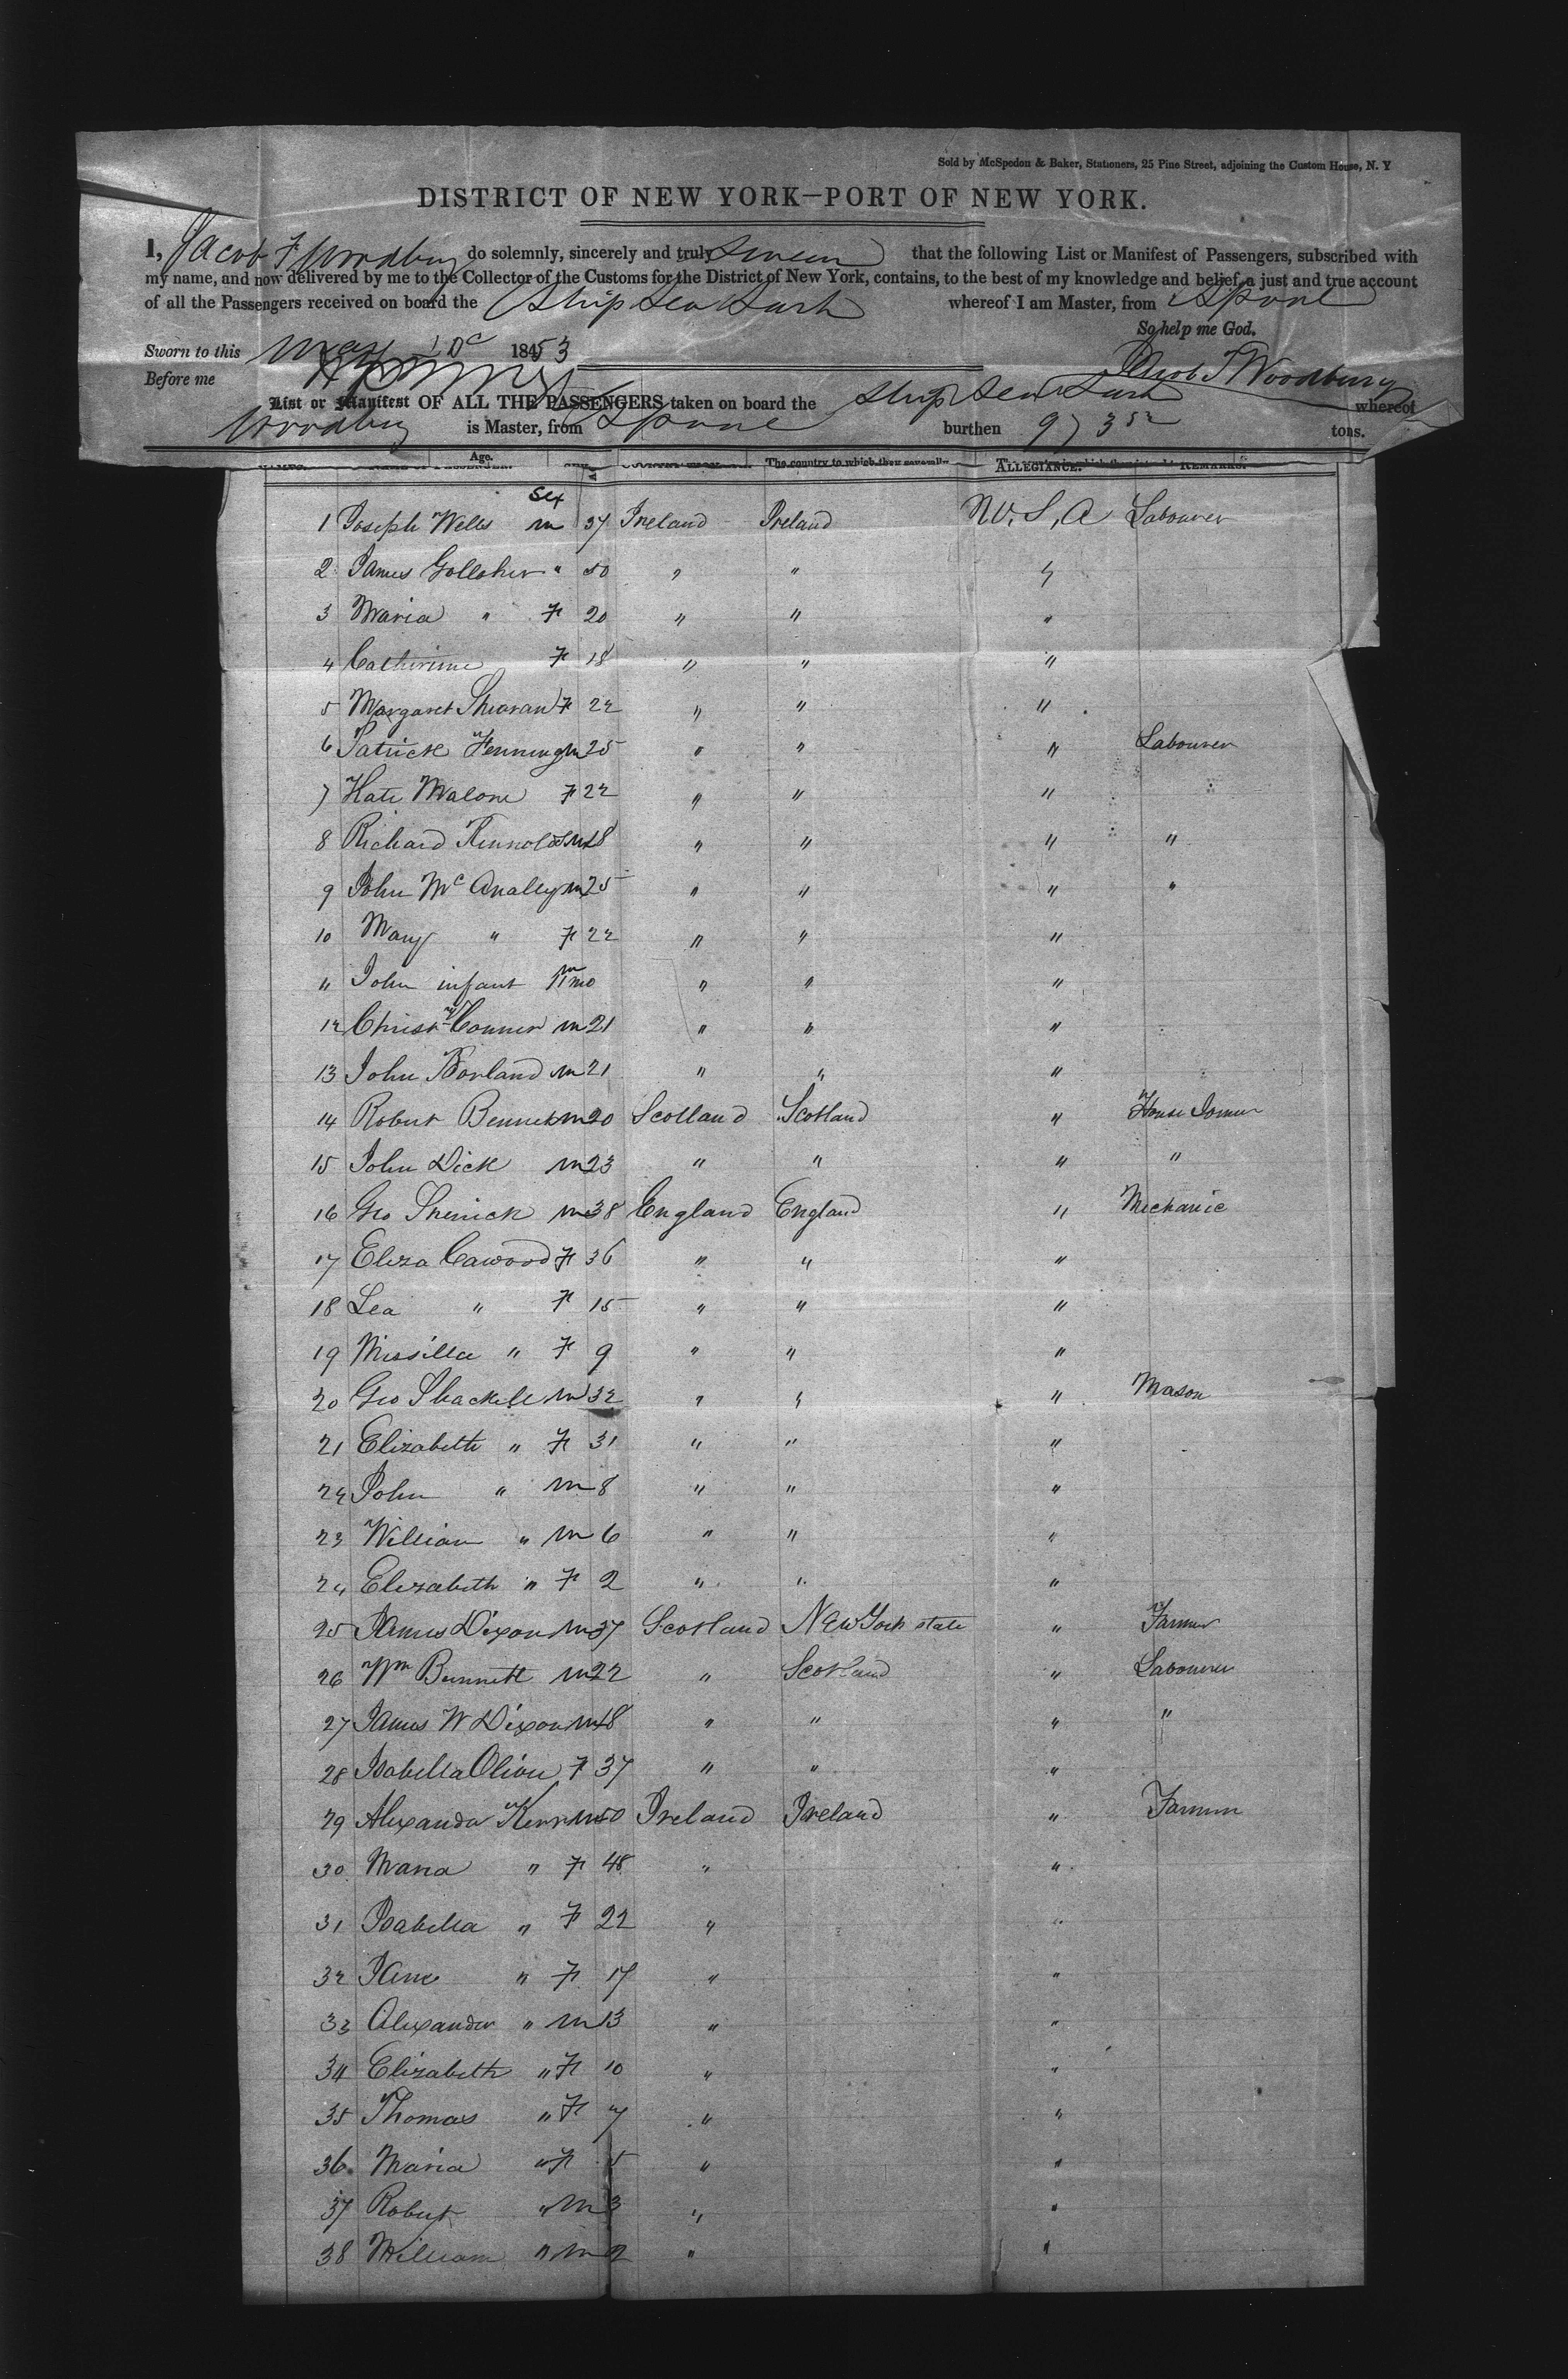 Sold by McSpedon & Baker, Stationers, 25 Pine Street, adjoining the Custom House, N. Y
DISTRICT OF NEW YORK—PORT OF NEW YORK.
I, Jacob F Woodbury do solemnly, sincerely and truly Swear that the following List or Manifest of Passengers, subscribed with
my name, and now delivered by me to the Collector of the Customs for the District of New York, contains, to the best of my knowledge and belief, a just and true account
of all the Passengers received on board the Ship Sea Lark whereof I am Master, from Lpool
So help me God.
Sworn to this May 1853
Jacob F Woodbury
Before me
List or Manifest OF ALL THE PASSENGERS taken on board the Ship Sea Lark whereof
Woodbury is Master, from Lpool burthen 973 52 tons.
Age. The country to which they severally ALLEGIANCE. REMARKS.
Sex
1 Joseph Wells m 37 Ireland Ireland U, S, A Labourer
2 James Golloher " 50 " " "
3 Maria " F 20 " " "
4 Catherine F 18 " " "
5 Margaret Shearan F 22 " " "
6 Patrick Fenning m 25 " " " Labourer
7 Kate Malone F 22 " " "
8 Richard Rennolds m 18 " " " "
9 John Mc Anally m 25 " " " "
10 Mary " F 22 " " "
11 John infant m 11 mo " " "
12 Christr Conner m 21 " " "
13 John Borland m 21 " " "
14 Robert Bennet m 20 Scotland Scotland " House Joiner
15 John Dick m 23 " " " "
16 Geo Sherrick m 38 England England " Mechanic
17 Eliza Cawood F 36 " " "
18 Lea " F 15 " " "
19 Missilla " F 9 " " "
20 Geo Shackell m 32 " " " Mason
21 Elizabeth " F 31 " " "
22 John " m 8 " " "
23 William " m 6 " " "
24 Elizabeth " F 2 " " "
25 James Dixon m 37 Scotland New York state " Farmer
26 Wm Bennett m 22 " Scotland " Labourer
27 James W Dixon m 18 " " " "
28 Isabella Oliver F 37 " " "
29 Alexander Kerr m 50 Ireland Ireland " Farmer
30 Maria " F 48 " "
31 Isabella " F 22 " "
32 Jane " F 17 " "
33 Alexander " m 13 " "
34 Elizabeth " F 10 " "
35 Thomas " F 7 " "
36 Maria " F 5 " "
37 Robert " m 3 " "
38 William " m 2 " "